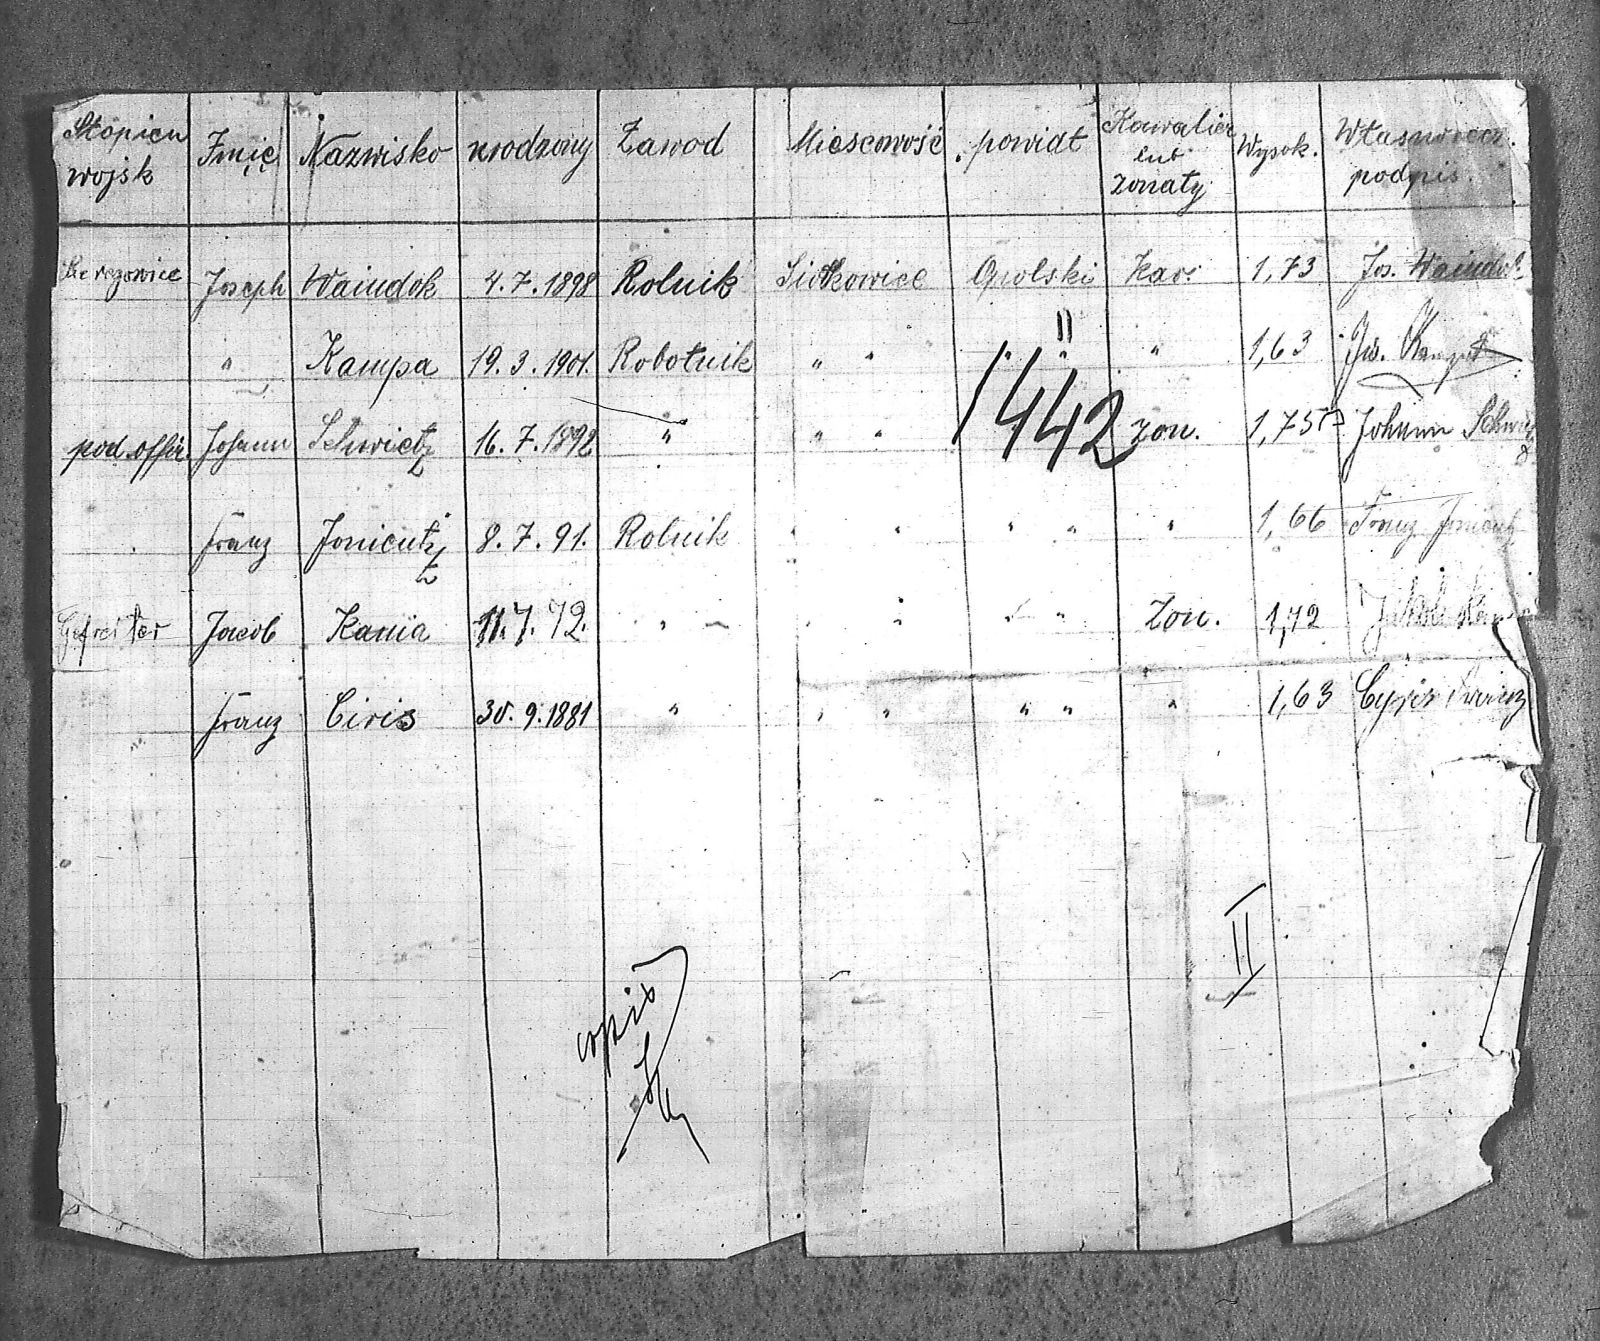 Stopień wojsk Imię Nazwisko urodzony Zawod Miescowość powiat Kawalier lub zonaty Wysok. podpis
Szeregowiec Joseph Waindok 4.7.1898 Rolnik Siołkowice Opolski Kav. 1,73 Jos. Waindok
" Kampa 19.3.1901. Robotnik " " " " " 1,63 Jos. Kampa
1442
pod.offir. Johann Schwietz 16.7.1892 " " " zon. 1,75 Johann
Franz Jonientz 8.7.91. Rolnik " " " " " 1,66 Franz Jonientz
Gefreiter Jacob Kania 11.7.72. " " " " " Zon. 1,72 Jakob Kania
" Franz Ciris 30.9.1881 " " " " " " 1,63 Franz
II